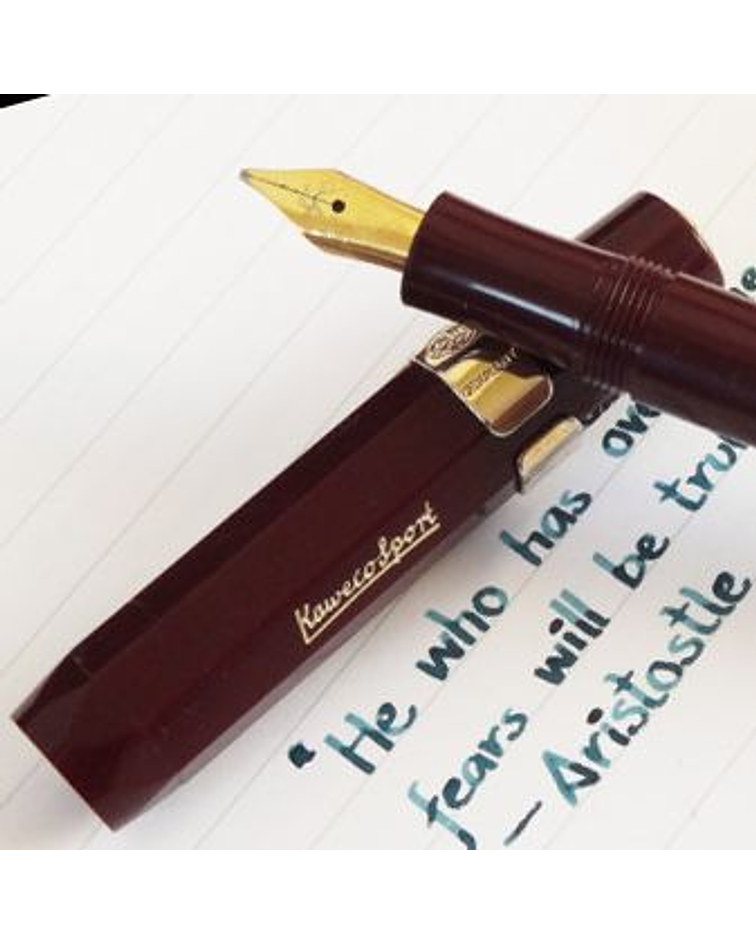 GERMANY
KawecoSport
"He who has ove
fears will be tru
- Aristostle